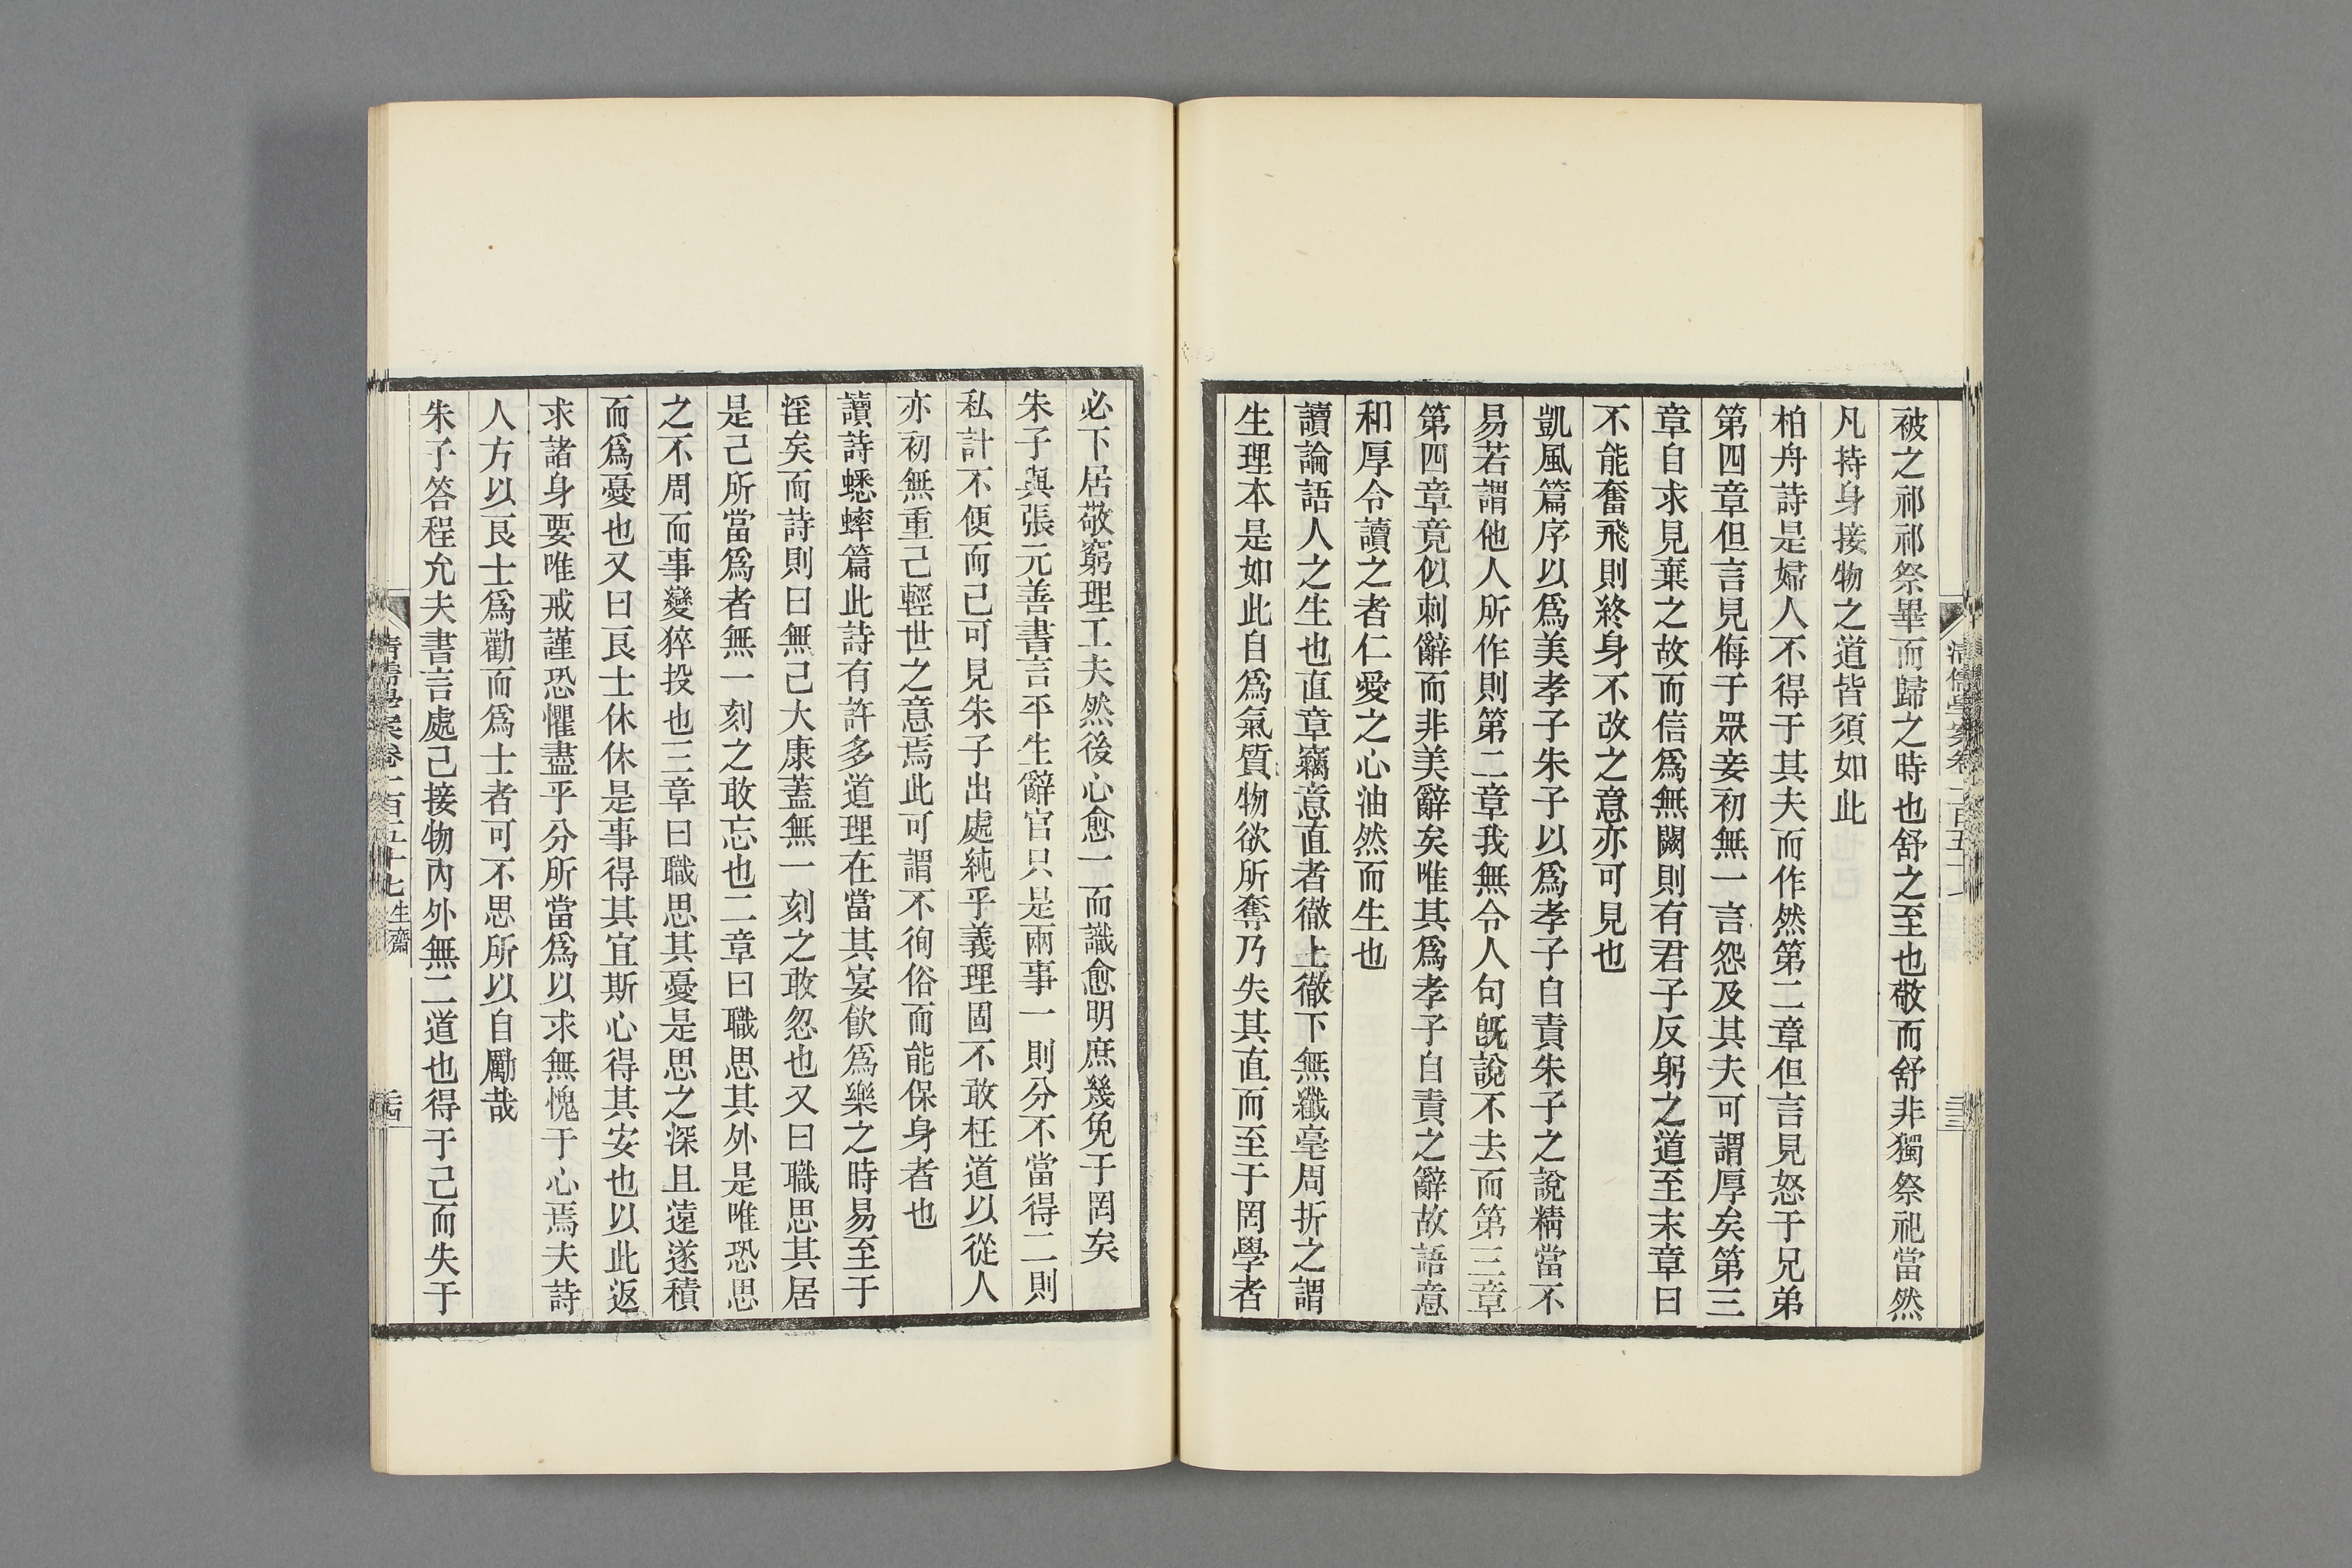 被之祁祁祭畢而歸之時也舒之至也敬而舒非獨祭祀當然
凡持身接物之道皆須如此
柏舟詩是婦人不得于其夫而作然第二章但言見怒于兄弟
第四章但言見侮于眾妾初無一言怨及其夫可謂厚矣第三
章自求見棄之故而信爲無闕則有君子反躬之道至末章曰
不能奮飛則終身不改之意亦可見也
凱風篇序以爲美孝子朱子以爲孝子自責朱子之說精當不
易若謂他人所作則第二章我無令人句旣說不去而第三章
第四章竟似刺辭而非美辭矣唯其爲孝子自責之辭故語意
和厚令讀之者仁愛之心油然而生也
讀論語人之生也直章竊意直者徹上徹下無纖毫周折之謂
生理本是如此自爲氣質物欲所奪乃失其直而至于罔學者
必下居敬窮理工夫然後心愈一而識愈明庶幾免于罔矣
朱子與張元善書言平生辭官只是兩事一則分不當得二則
私計不便而已可見朱子出處純乎義理固不敢枉道以從人
亦初無重己輕世之意焉此可謂不徇俗而能保身者也
讀詩蟋蟀篇此詩有許多道理在當其宴飮爲樂之時易至于
淫矣而詩則曰無已大康蓋無一刻之敢忽也又曰職思其居
是己所當爲者無一刻之敢忘也二章曰職思其外是唯恐思
之不周而事變猝投也三章曰職思其憂是思之深且遠遂積
而爲憂也又曰良士休休是事得其宜斯心得其安也以此返
求諸身要唯戒謹恐懼盡乎分所當爲以求無愧于心焉夫詩
人方以良士爲勸而爲士者可不思所以自勵哉
朱子答程允夫書言處己接物內外無二道也得于己而失于
清儒學案卷一百五十七 生齋